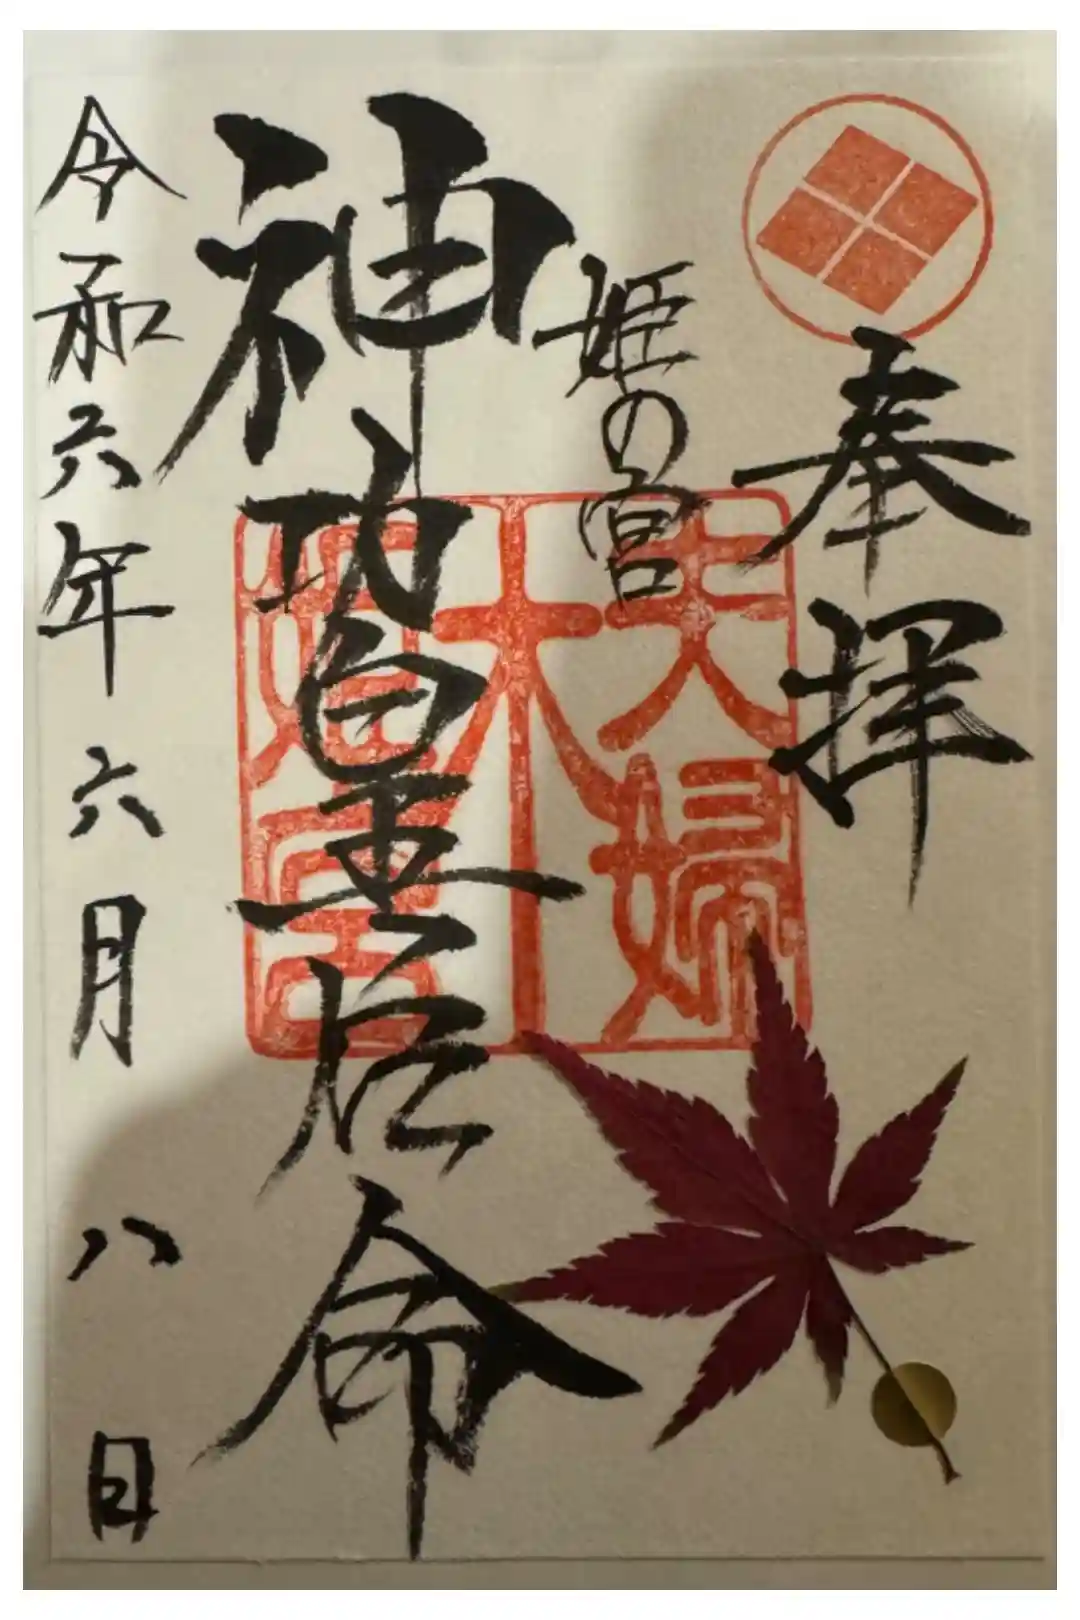 奉拝
夫婦
木
姫の宮
姫宮
神功皇后命
令和六年六月八日